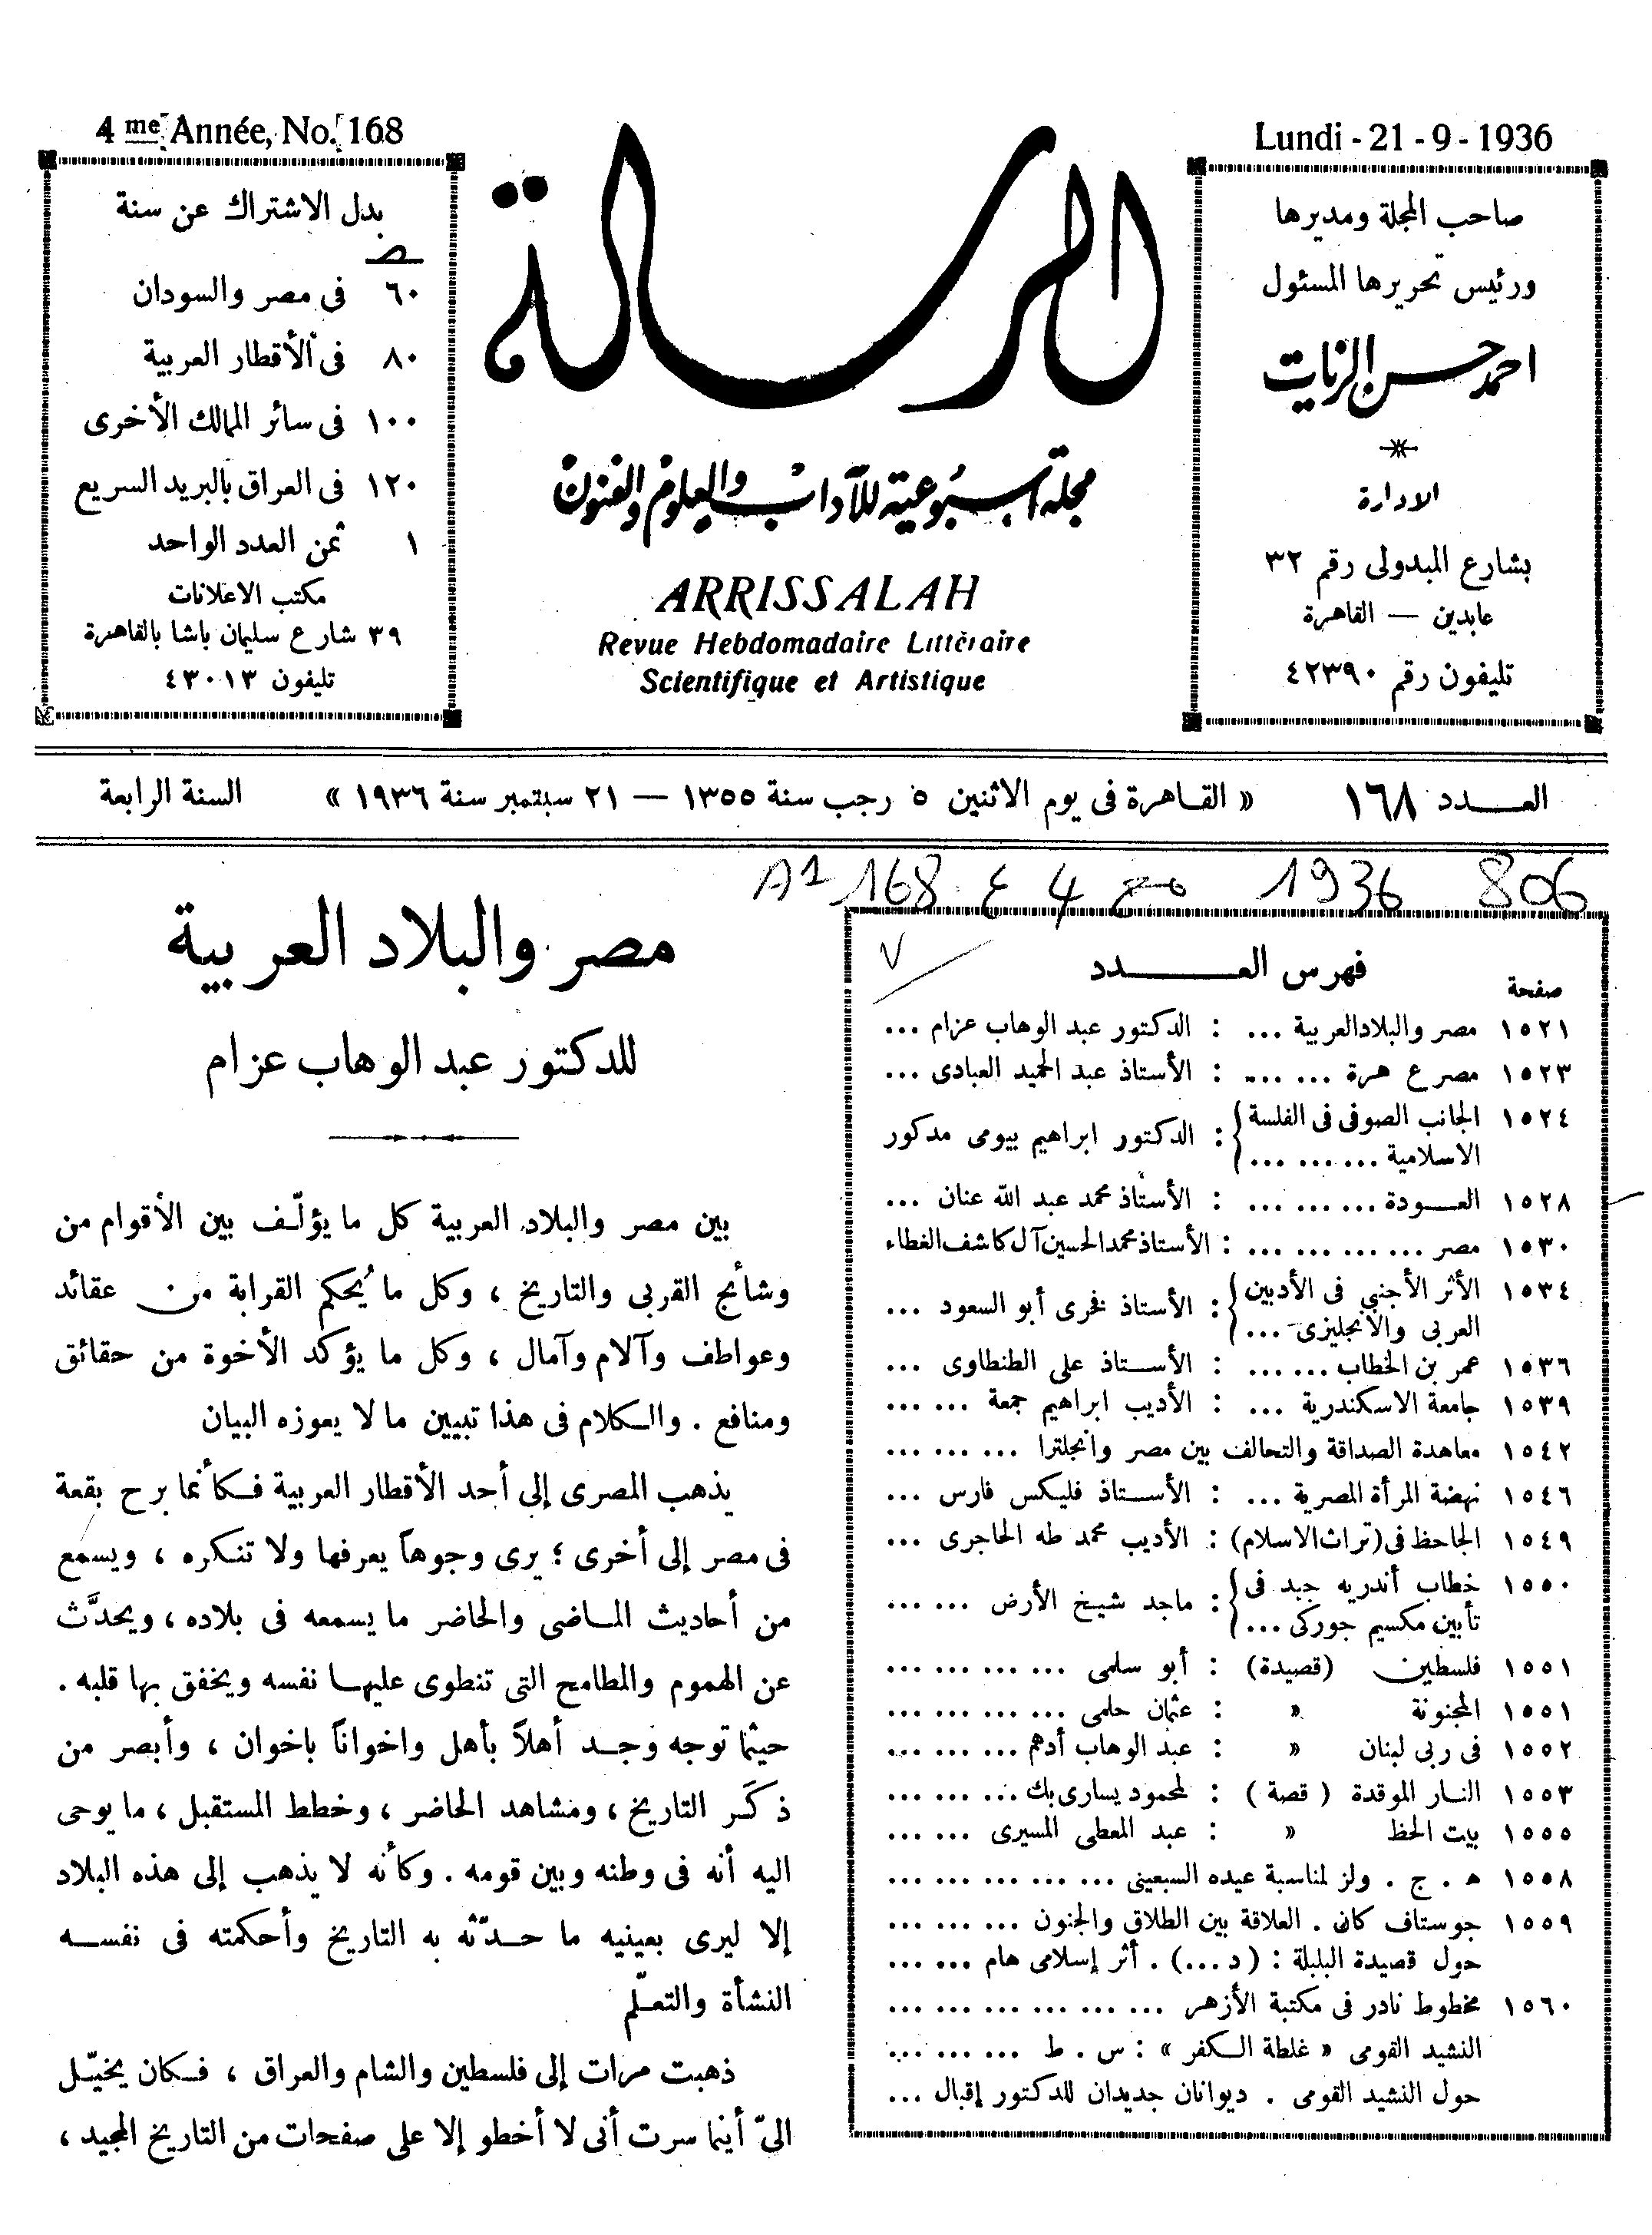 4 me Année, No. 168
Lundi - 21 - 9 - 1936
صاحب المجلة ومديرها
ورئيس تحريرها المسئول
احمد حسن الزيات
الادارة
بشارع المبدولى رقم ٣٢
عابدين — القاهرة
تليفون رقم ٤٢٣٩٠
الرسالة
مجلة اسبوعية للآداب والعلوم والفنون
ARRISSALAH
Revue Hebdomadaire Littéraire
Scientifique et Artistique
بدل الاشتراك عن سنة
٦٠ فى مصر والسودان
٨٠ فى الأقطار العربية
١٠٠ فى سائر الممالك الأخرى
١٢٠ فى العراق بالبريد السريع
١ ثمن العدد الواحد
مكتب الاعلانات
٣٩ شارع سليمان باشا بالقاهرة
تليفون ٤٣٠١٣
العـــدد ١٦٨ « القاهرة فى يوم الاثنين ٥ رجب سنة ١٣٥٥ — ٢١ سبتمبر سنة ١٩٣٦ » السنة الرابعة
A1 168 ع 4 1936 806
فهرس العـــــدد
صفحة
١٥٢١ مصر والبلاد العربية ... : الدكتور عبد الوهاب عزام ...
١٥٢٣ مصرع هرة ... ... : الأستاذ عبد الحميد العبادى ...
١٥٢٤ الجانب الصوفى فى الفلسة
الاسلامية ... ... ... : الدكتور ابراهيم بيومى مدكور
١٥٢٨ العـــودة ... ... ... : الأستاذ محمد عبد الله عنان ...
١٥٣٠ مصر ... ... ... ... : الأستاذ محمد الحسين آل كاشف الغطاء
١٥٣٤ الأثر الأجنبي فى الأدبين
العربى والانجليزى ... : الأستاذ فخرى أبو السعود ...
١٥٣٦ عمر بن الخطاب ... ... : الأستاذ على الطنطاوى ...
١٥٣٩ جامعة الاسكندرية ... : الأديب ابراهيم جمعة ... ...
١٥٤٢ معاهدة الصداقة والتحالف بين مصر وانجلترا ... ... ...
١٥٤٦ نهضة المرأة المصرية ... : الأستاذ فليكس فارس ...
١٥٤٩ الجاحظ فى (تراث الاسلام) : الأديب محمد طه الحاجرى ...
١٥٥٠ خطاب أندريه جيد فى
تأبين مكسيم جوركى ... : ماجد شيخ الأرض ... ...
١٥٥١ فلسطين (قصيدة) : أبو سلمى ... ... ... ...
١٥٥١ المجنونة « : عثمان حلمى ... ... ... ...
١٥٥٢ فى ربى لبنان » : عبد الوهاب أدهم ... ... ...
١٥٥٣ النار الموقدة ( قصة ) : لمحمود يسارى بك ... ... ...
١٥٥٥ بيت الحظ « : عبد المعطى المسيرى ... ...
١٥٥٨ ه . ج . ولز لمناسبة عيده السبعينى ... ... ... ... ...
١٥٥٩ جوستاف كان . العلاقة بين الطلاق والجنون ... ... ...
حول قصيدة البلبلة : ( د ... ) . أثر إسلامى هام ... ...
١٥٦٠ مخطوط نادر فى مكتبة الأزهر ... ... ... ... ... ...
النشيد القومى « غلطة الكفر » : س . ط ... ... ...
حول النشيد القومى . ديوانان جديدان للدكتور إقبال ...
مصر والبلاد العربية
للدكتور عبد الوهاب عزام
بين مصر والبلاد العربية كل ما يؤلّف بين الأقوام من
وشائج القربى والتاريخ ، وكل ما يُحكم القرابة من عقائد
وعواطف وآلام وآمال ، وكل ما يؤكد الأخوة من حقائق
ومنافع . والكلام فى هذا تبيين ما لا يعوزه البيان
يذهب المصرى إلى أحد الأقطار العربية فكأنما برح بقعة
فى مصر إلى أخرى ؛ يرى وجوهاً يعرفها ولا تنكره ، ويسمع
من أحاديث الماضى والحاضر ما يسمعه فى بلاده ، ويحدَّث
عن الهموم والمطامح التى تنطوى عليها نفسه ويخفق بها قلبه .
حيثما توجه وجد أهلاً بأهل واخواناً باخوان ، وأبصر من
ذكَر التاريخ ، ومشاهد الحاضر ، وخطط المستقبل ، ما يوحى
اليه أنه فى وطنه وبين قومه . وكأنه لا يذهب إلى هذه البلاد
إلا ليرى بعينيه ما حدّثه به التاريخ وأحكمته فى نفسه
النشأة والتعلّم
ذهبت مرات إلى فلسطين والشام والعراق ، فكان يخيّل
الىّ أينما سرت أنى لا أخطو إلا على صفحات من التاريخ المجيد ،